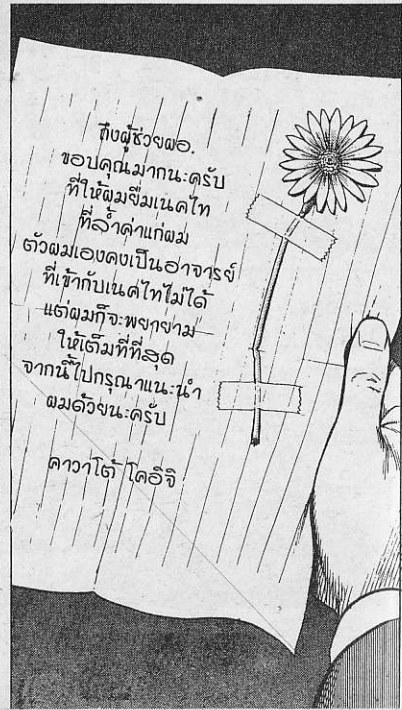 ถึงผู้ช่วยผอ.
ขอบคุณมากนะครับ
ที่ให้ผมยืมเนคไท
ที่ล้ำค่าแก่ผม
ตัวผมเองคงเป็นอาจารย์
ที่เข้ากับเนคไทไม่ได้
แต่ผมก็จะพยายาม
ให้เต็มที่ที่สุด
จากนี้ไปกรุณาแนะนำ
ผมด้วยนะครับ
คาวาโต้ โคอิจิ